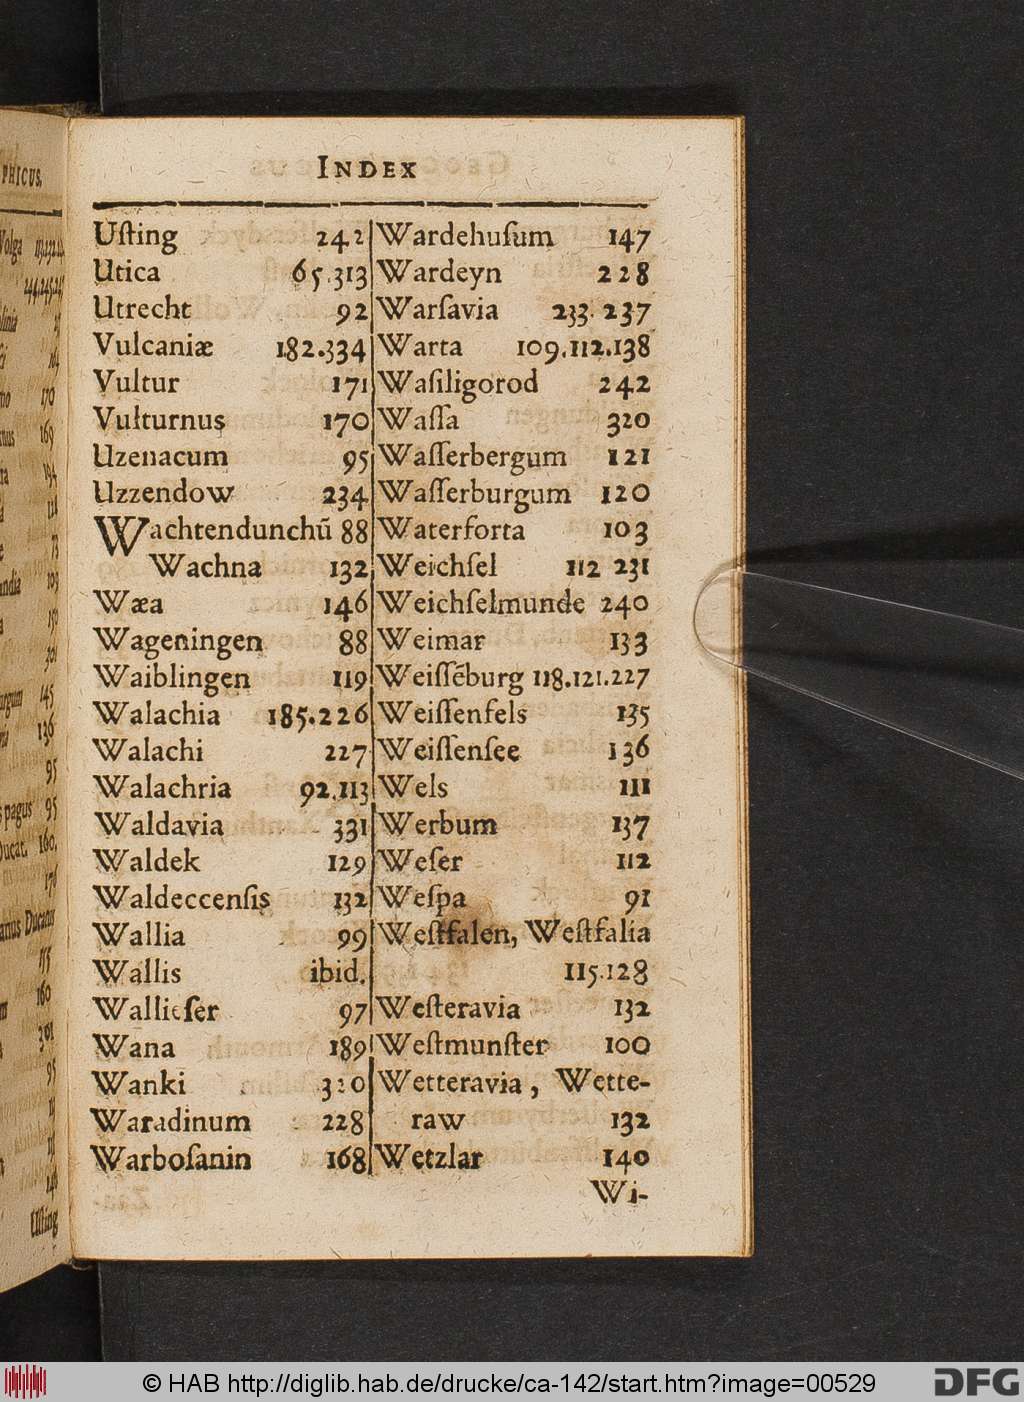 INDEX
Uſting 242
Utica 65.313
Utrecht 92
Vulcaniæ 182.334
Vultur 171
Vulturnus 170
Uzenacum 95
Uzzendow 234
Wachtendunchū 88
Wachna 132
Wæa 146
Wageningen 88
Waiblingen 119
Walachia 185.226
Walachi 227
Walachria 92.113
Waldavia 331
Waldek 129
Waldeccenſis 132
Wallia 99
Wallis ibid.
Wallieſer 97
Wana 189
Wanki 320
Waradinum 228
Warboſanin 168
Wardehuſum 147
Wardeyn 228
Warſavia 233. 237
Warta 109.112.138
Waſiligorod 242
Waſſa 320
Waſſerbergum 121
Waſſerburgum 120
Waterforta 103
Weichſel 112 231
Weichſelmunde 240
Weimar 133
Weiſſēburg 118.121.227
Weiſſenfels 135
Weiſſenſee 136
Wels 111
Werbum 137
Weſer 112
Weſpa 91
Weſtfalen, Weſtfalia
115.128
Weſteravia 132
Weſtmunſter 100
Wetteravia, Wette-
raw 132
Wetzlar 140
Wi-
PHICUS.
Volga
244.245.247
170
169
194
118
73
103
150
301
145
136
95
pagus 95
Ducat. 160.
176
anus Ducatus
155
160
301
95
Uſting
© HAB http://diglib.hab.de/drucke/ca-142/start.htm?image=00529
DFG